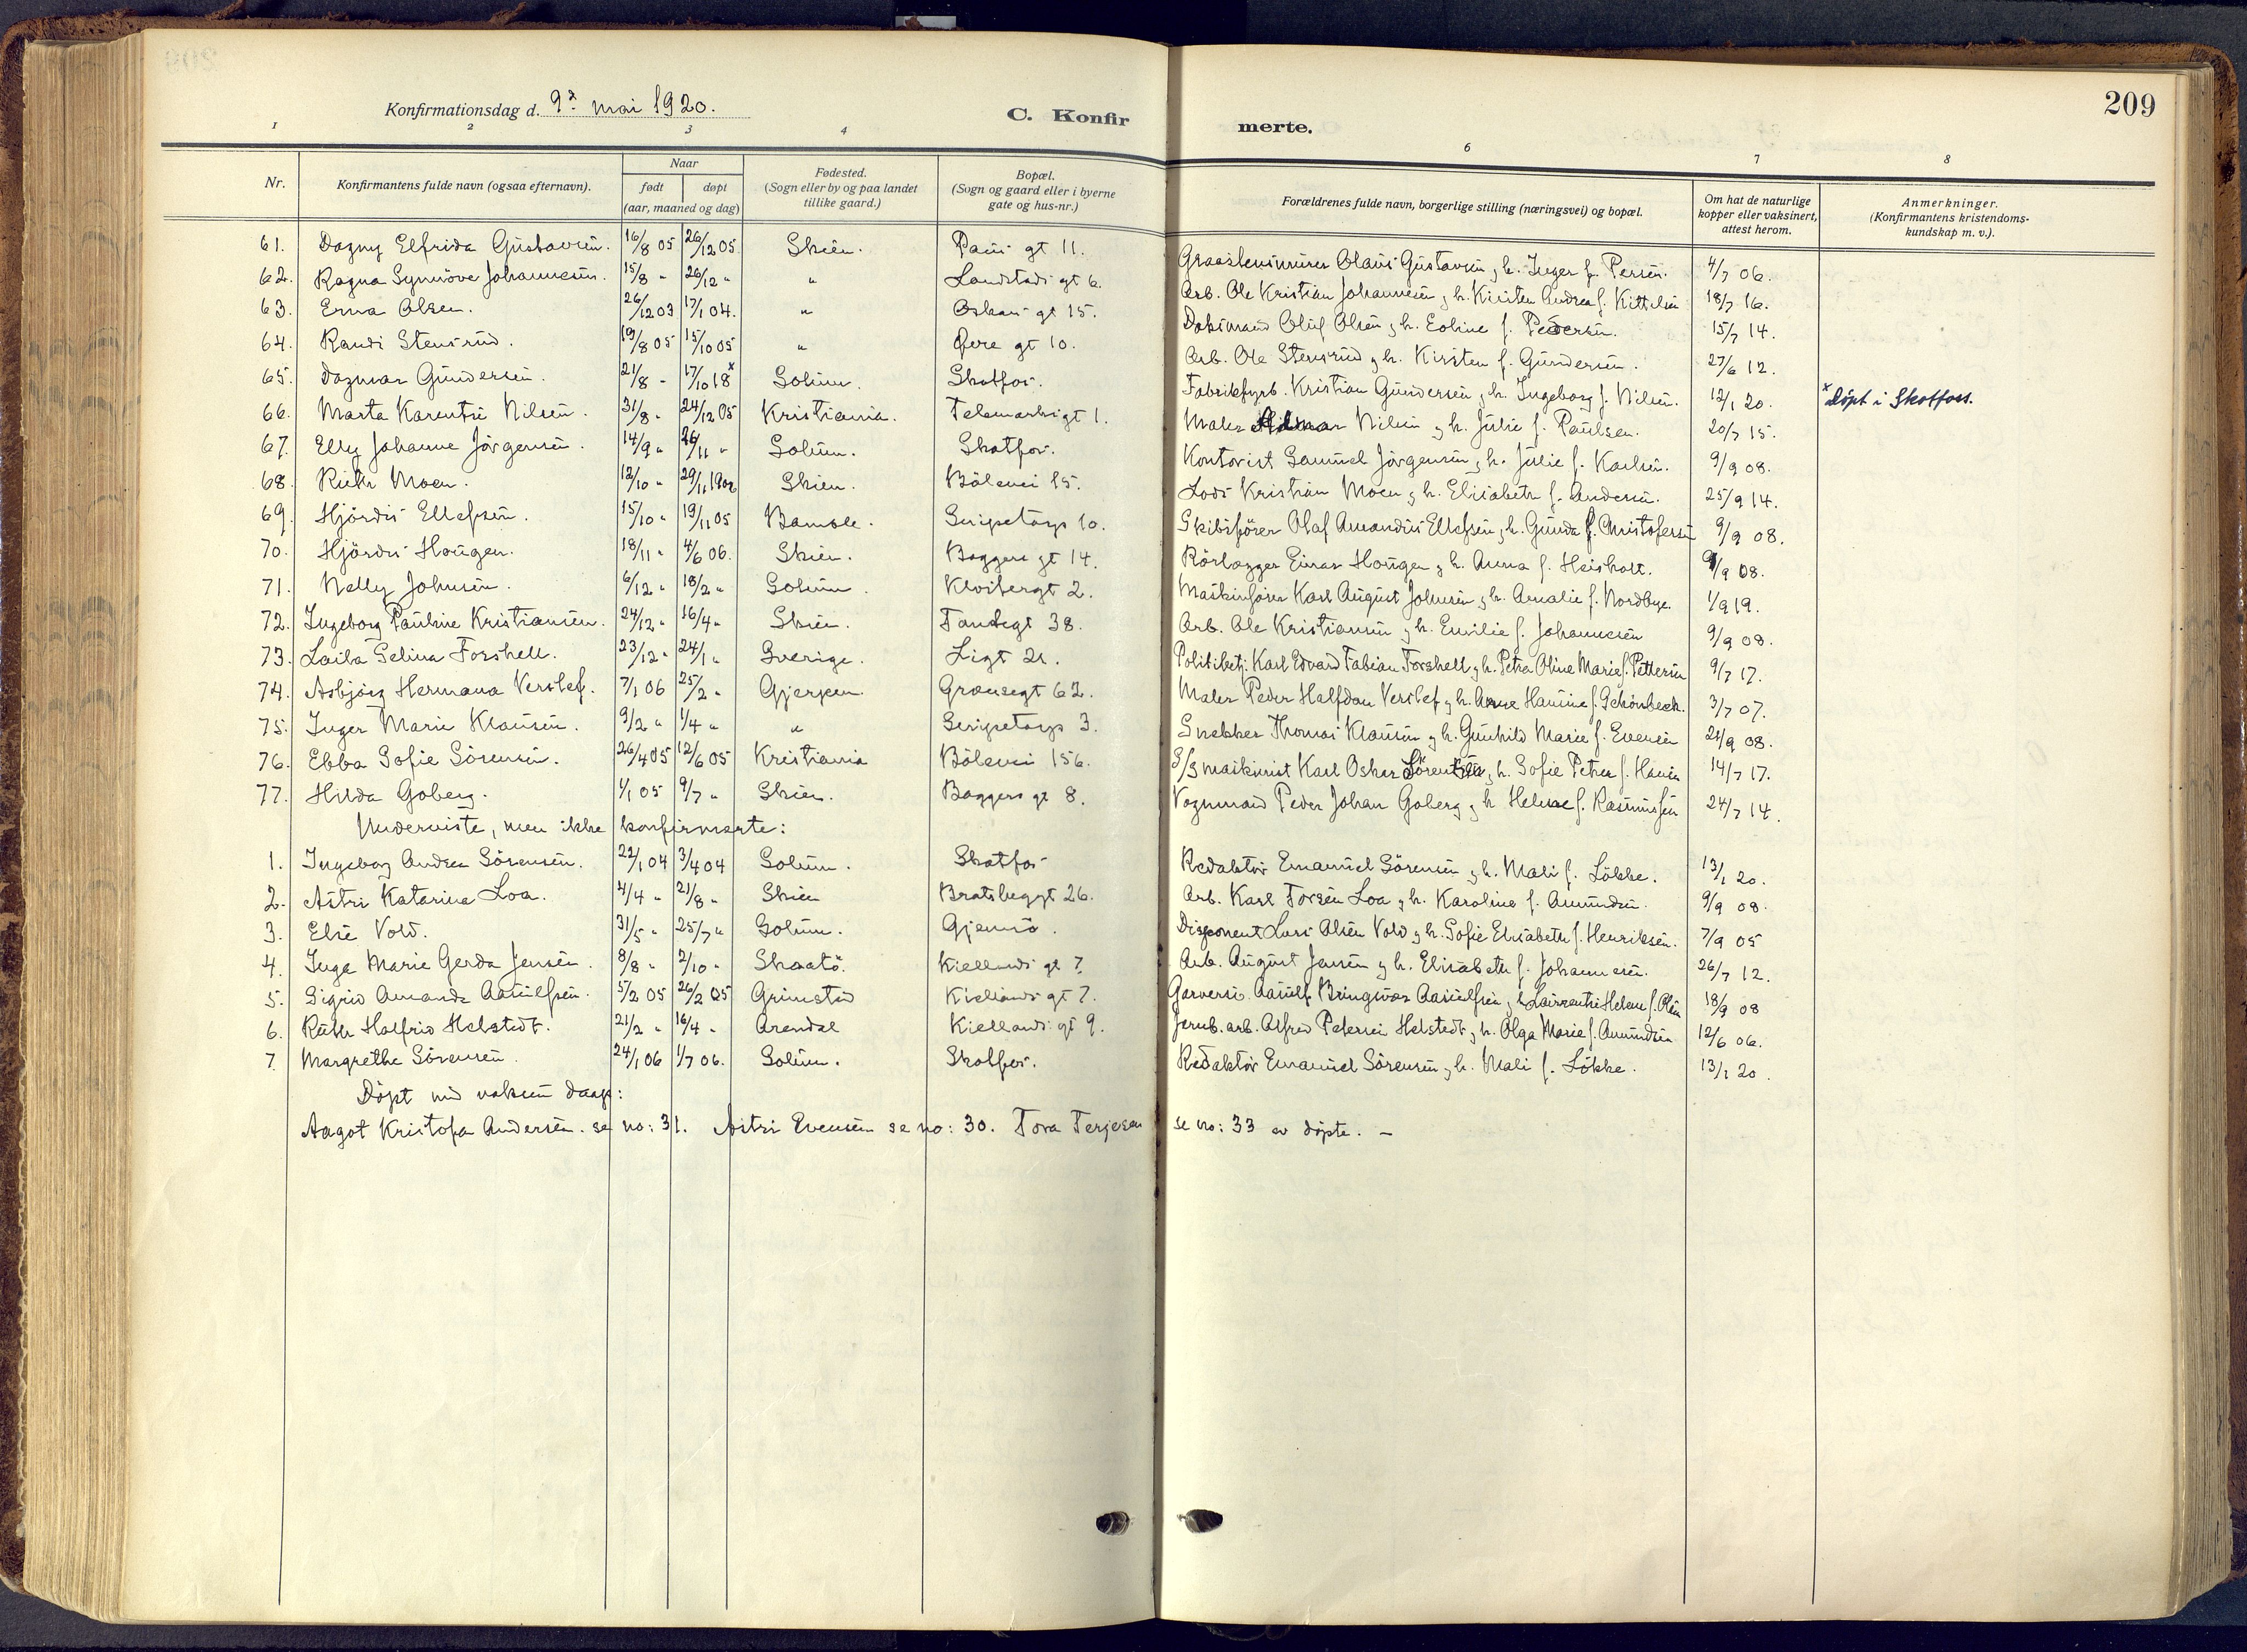 209
Konfirmationsdag d. 9de mai 1920. C. Konfirmerte.
1 2 3 4 6 7 8
Nr. Konfirmantens fulde navn (ogsaa efternavn). Naar født døpt (aar, maaned og dag) Fødested. (Sogn eller by og paa landet tillike gaard.) Bopæl. (Sogn og gaard eller i byerne gate og hus-nr.) Forældrenes fulde navn, borgerlige stilling (næringsvei) og bopæl. Om hat de naturlige kopper eller vaksinert, attest herom. Anmerkninger. (Konfirmantens kristendoms-kundskap m. v.).
61. Dagny Elfrida Gustavsen. 16/8 05 26/12 05 Skien. Pauss gt 11. Graastensmurer Olaus Gustavsen & h. Inger f. Persen. 4/7 06.
62. Ragna Synnöve Johannesen. 15/8 " 26/12 " " Landstads gt 6. Arb. Ole Kristian Johannesen & h. Kirsten Andrea f. Kittelsen 18/7 16.
63. Erna Olsen. 26/12 03 17/1 04. " Oskars gt 15. Dokmand Oluf Olsen & h. Eoline f. Pedersen. 15/7 14.
64. Randi Stensrud. 19/8 05 15/10 05 " Övre gt 10. Arb. Ole Stensrud & h. Kirsten f. Gundersen. 27/6 12.
65. Dagmar Gundersen. 21/8 " 17/10 18 x Solum. Skotfos. Fabrikfyrb. Kristian Gundersen & h. Ingeborg f. Nilsen. 12/1 20. x Döpt i Skotfoss.
66. Marta Karentse Nilsen. 31/8 " 24/12 05 Kristiania. Telemarksgt 1. Maler Nilsen & h. Julie f. Paulsen. 20/7 15.
67. Elly Johanne Jörgensen. 14/9 " 26/11 " Solum. Skotfos. Kontorist Samuel Jörgensen & h. Julie f. Karlsen. 9/9 08.
68. Ruth Moen. 12/10 " 29/11 Skien. Bölevei 15. Lods Kristian Moen & h. Elisabeth f. Andersen. 25/9 14.
69. Hjördis Ellefsen. 15/10 " 19/11 05 Bamble. Geripetorp 10. Skibsförer Olaf Amandus Ellefsen & h. Gunda f. Christofersen 9/9 08.
70. Hjördis Hougen. 18/11 " 4/6 06. Skien. Baggers gt 14. Rörlægger Einar Hougen & h. Anna f. Heisholt. 9/9 08.
71. Nelly Johnsen. 6/12 " 18/2 " Solum. Klosterg​t 2. Maskinförer Karl August Johnsen & h. Amalie f. Nordbye. 1/9 19.
72. Ingeborg Pauline Kristiansen. 24/12 " 16/4 " Skien. Fandegt 38. Arb. Ole Kristiansen & h. Emilie f. Johannesen 9/9 08.
73. Laila Selina Forshell. 23/12 " 24/1 " Sverige. Ligt 21. Politibetj. Karl Edvard Fabian Forshell & h. Petra Oline Marie f. Pettersen 9/7 17.
74. Asbjörg Hermana Verslef. 7/1 06 25/2 " Gjerpen. Grænsegt 62. Maler Peder Halfdan Verslef & h. Anne Hanine f. Schönbeck. 3/7 07.
75. Inger Marie Klausen. 9/2 " 1/4 " " Geripetorp 3. Snekker Thomas Klausen & h. Gunhild Marie f. Evensen 21/9 08.
76. Ebba Sofie Sörensen. 26/4 05 12/6 05 Kristiania Bölevei 156. S/S maskinist Karl Oskar Sörensen & h. Sofie Petra f. Hansen 14/7 17.
77. Hilda Goberg. 1/1 05 9/7 " Skien. Baggers gt 8. Vognmand Peder Johan Goberg & h Helene f. Rasmussen 24/7 14.
Underviste, men ikke konfirmerte:
1. Ingeborg Andrea Sörensen. 22/1 04 3/4 04 Solum. Skotfos Redaktör Emanuel Sörensen & h. Mali f. Lökke. 13/1 20.
2. Astri Katarina Loa. 4/4 " 21/8 " Skien Bratsbeggt 26. Arb. Karl Torsen Loa & h. Karoline f. Amundsen. 9/9 08.
3. Else Vold. 31/5 " 25/7 " Solum. Gjemsö. Disponent Lars Olsen Vold & h. Sofie Elisabeth f. Henriksen. 7/9 05
4. Inga Marie Gerda Jensen. 8/8 " 2/10 " Skaatö. Kiellands gt 7. Arb. August Jensen & h. Elisabeth f. Johannesen. 26/7 12.
5. Sigrid Amanda Aanulfsen. 5/2 05 26/2 05 Grimstad Kiellands gt 7. Garversv. Aanulf Bringsvær Aanulfsen & h Laurentse Helene f. Olsen 18/9 08
6. Ruth Halfrid Helstedt. 21/2 " 16/4 " Arendal Kiellands gt 9. Jernb. arb. Alfred Petersen Helstedt & h. Olga Marie f. Amundsen 12/6 06.
7. Margrethe Sörensen. 24/1 06 1/7 06. Solum. Skotfos. Redaktör Emanuel Sörensen & h. Mali f. Lökke. 13/1 20.
Döpt ved voksen daap:
Aagot Kristofa Andersen. se no: 31. Astri Evensen se no: 30. Tora Terjesen se no: 33 av döpte. –